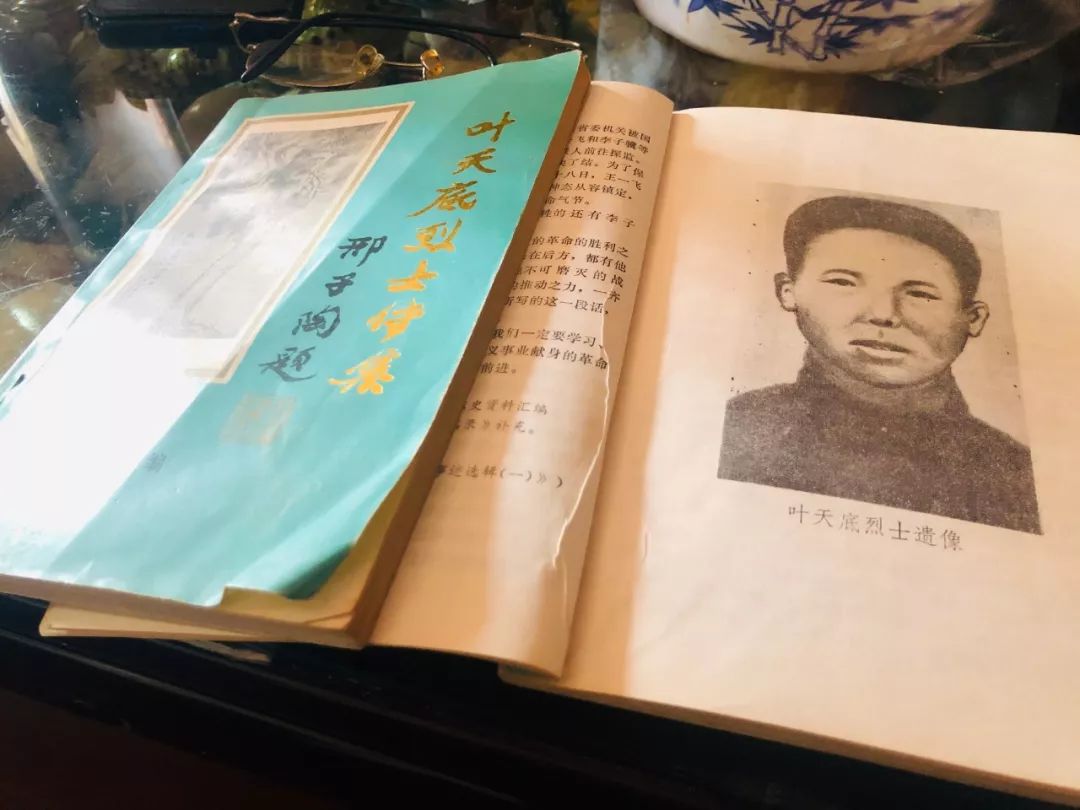 叶天底烈士传集
邢子陶题
编
省委机关被国
飞和李子骥等
人前往探监。
了结。为了保
十八日,王一飞
神态从容镇定,
命气节。
牲的还有李子
的革命的胜利之
在后方,都有他
不可磨灭的战
的推动之力,一齐
所写的这一段话,
我们一定要学习、
义事业献身的革命
前进。
史资料汇编
录》补充。
述选辑(一)》)
叶天底烈士遗像